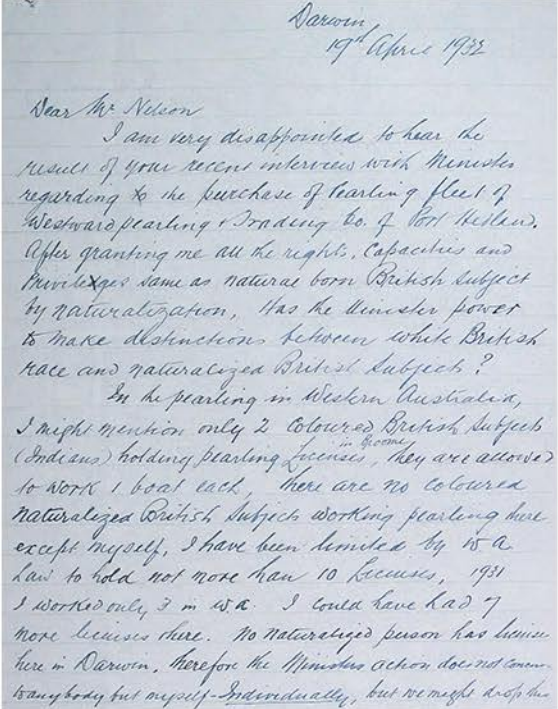 Darwin
19th April 1932
Dear Mr Nelson
I am very disappointed to hear the
result of your recent interview with Minister
regarding to the purchase of Pearling fleet of
Westward pearling & Trading Co. of Port Hedland.
After granting me all the rights, capacities and
Privileges same as natural born British Subject
by naturalization, Has the Minister power
to make distinctions between white British
race and naturalized British Subjects?
In the pearling in Western Australia,
I might mention only 2 Coloured British Subjects
(Indians) holding pearling Licenses in Broome, they are allowed
to work 1 boat each, there are no coloured
naturalized British Subjects working pearling there
except myself, I have been limited by W A
Law to hold not more than 10 Licenses, 1931
I worked only 3 in W.A. I could have had 7
more licenses there. No naturalized person has license
here in Darwin, therefore the Ministers action does not concern
to anybody but myself - Individually, but we might drop this